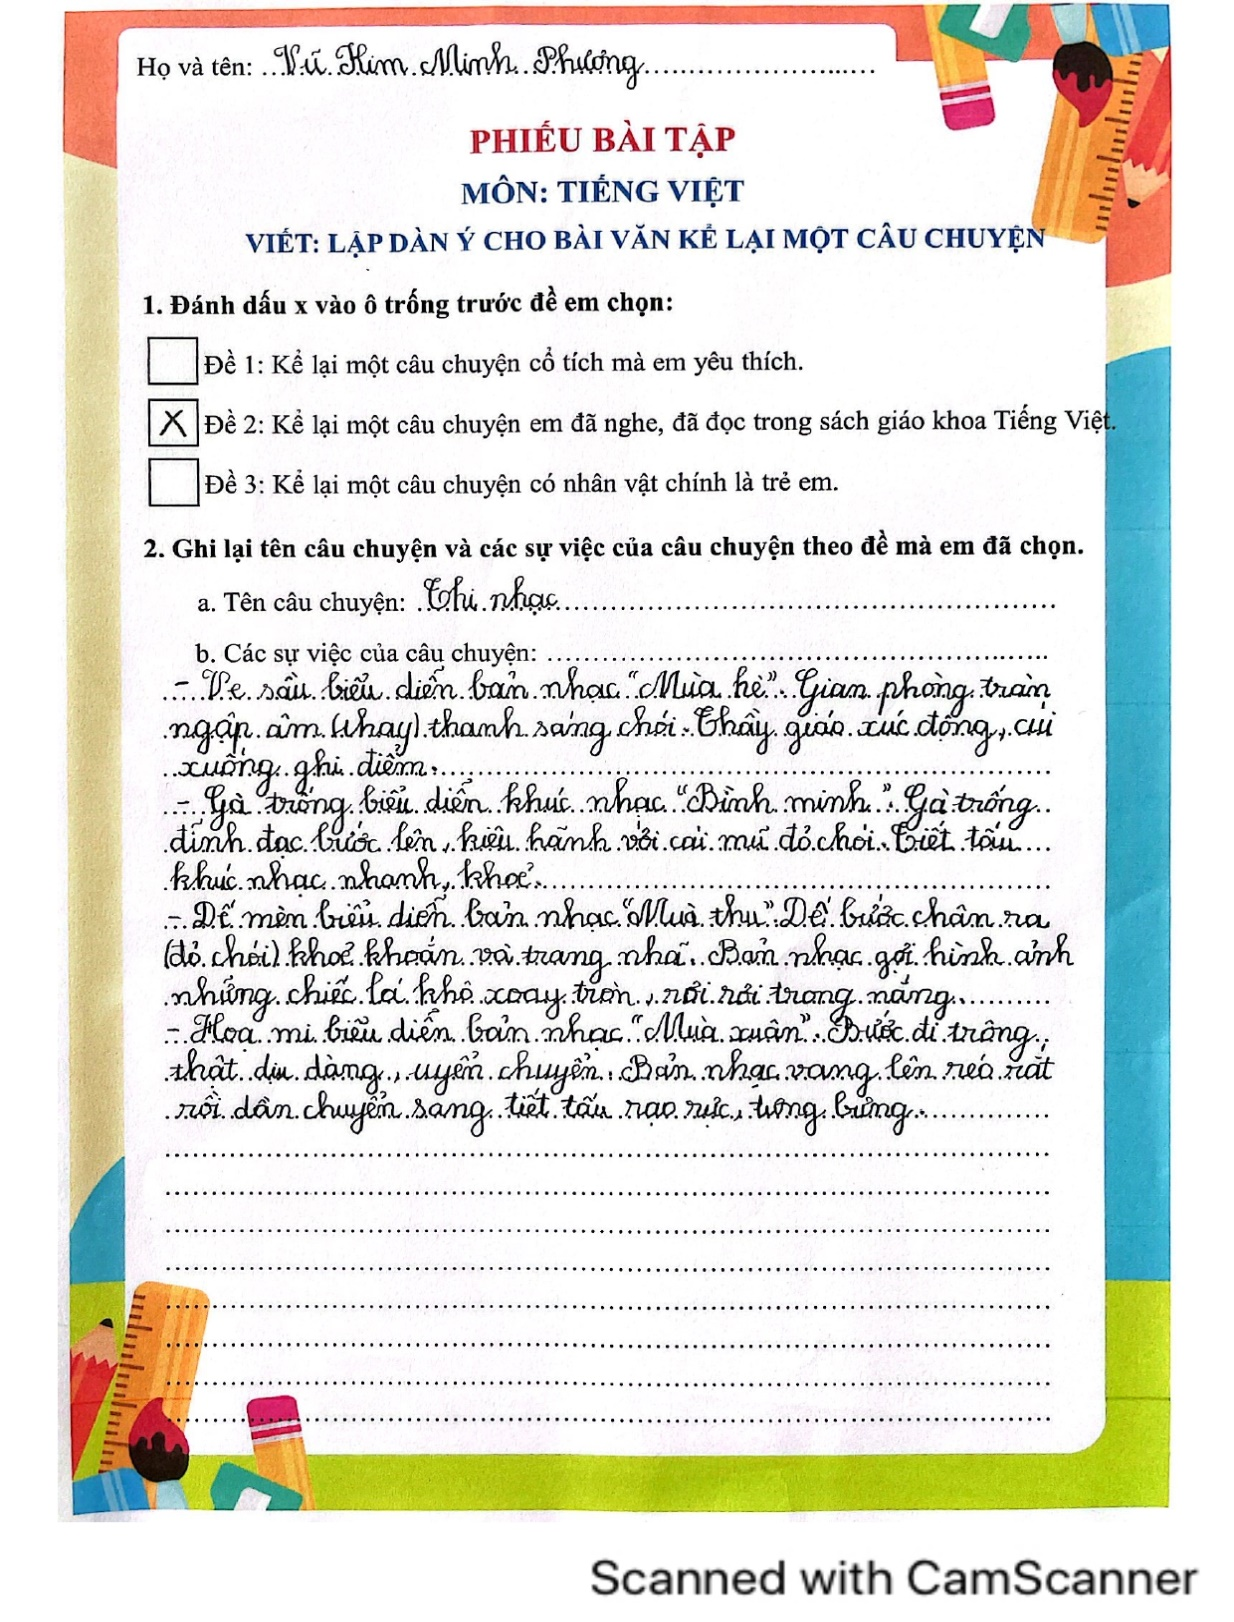 Họ và tên: Vũ Kim Minh Phương
PHIẾU BÀI TẬP
MÔN: TIẾNG VIỆT
VIẾT: LẬP DÀN Ý CHO BÀI VĂN KỂ LẠI MỘT CÂU CHUYỆN
1. Đánh dấu x vào ô trống trước đề em chọn:
Đề 1: Kể lại một câu chuyện cổ tích mà em yêu thích.
X Đề 2: Kể lại một câu chuyện em đã nghe, đã đọc trong sách giáo khoa Tiếng Việt.
Đề 3: Kể lại một câu chuyện có nhân vật chính là trẻ em.
2. Ghi lại tên câu chuyện và các sự việc của câu chuyện theo đề mà em đã chọn.
a. Tên câu chuyện: Thi nhạc
b. Các sự việc của câu chuyện:
- Ve sầu biểu diễn bản nhạc "Mùa hè". Gian phòng tràn
ngập âm (nhạy) thanh sáng chói. Thầy giáo xúc động, cúi
xuống ghi điểm.
- Gà trống biểu diễn khúc nhạc "Bình minh". Gà trống
đĩnh đạc bước lên, kiêu hãnh với cái mũ đỏ chói. Tiết tấu
khúc nhạc nhanh, khoẻ.
- Dế mèn biểu diễn bản nhạc "Muà thu". Dế bước chân ra
(đỏ chói) khoẻ khoắn và trang nhã. Bản nhạc gợi hình ảnh
những chiếc lá khô xoay tròn, rơi rơi trong nắng.
- Hoạ mi biểu diễn bản nhạc "Mùa xuân". Bước đi trông
thật dịu dàng, uyển chuyển. Bản nhạc vang lên réo rắt
rồi dần chuyển sang tiết tấu rạo rực, tưng bừng.
Scanned with CamScanner